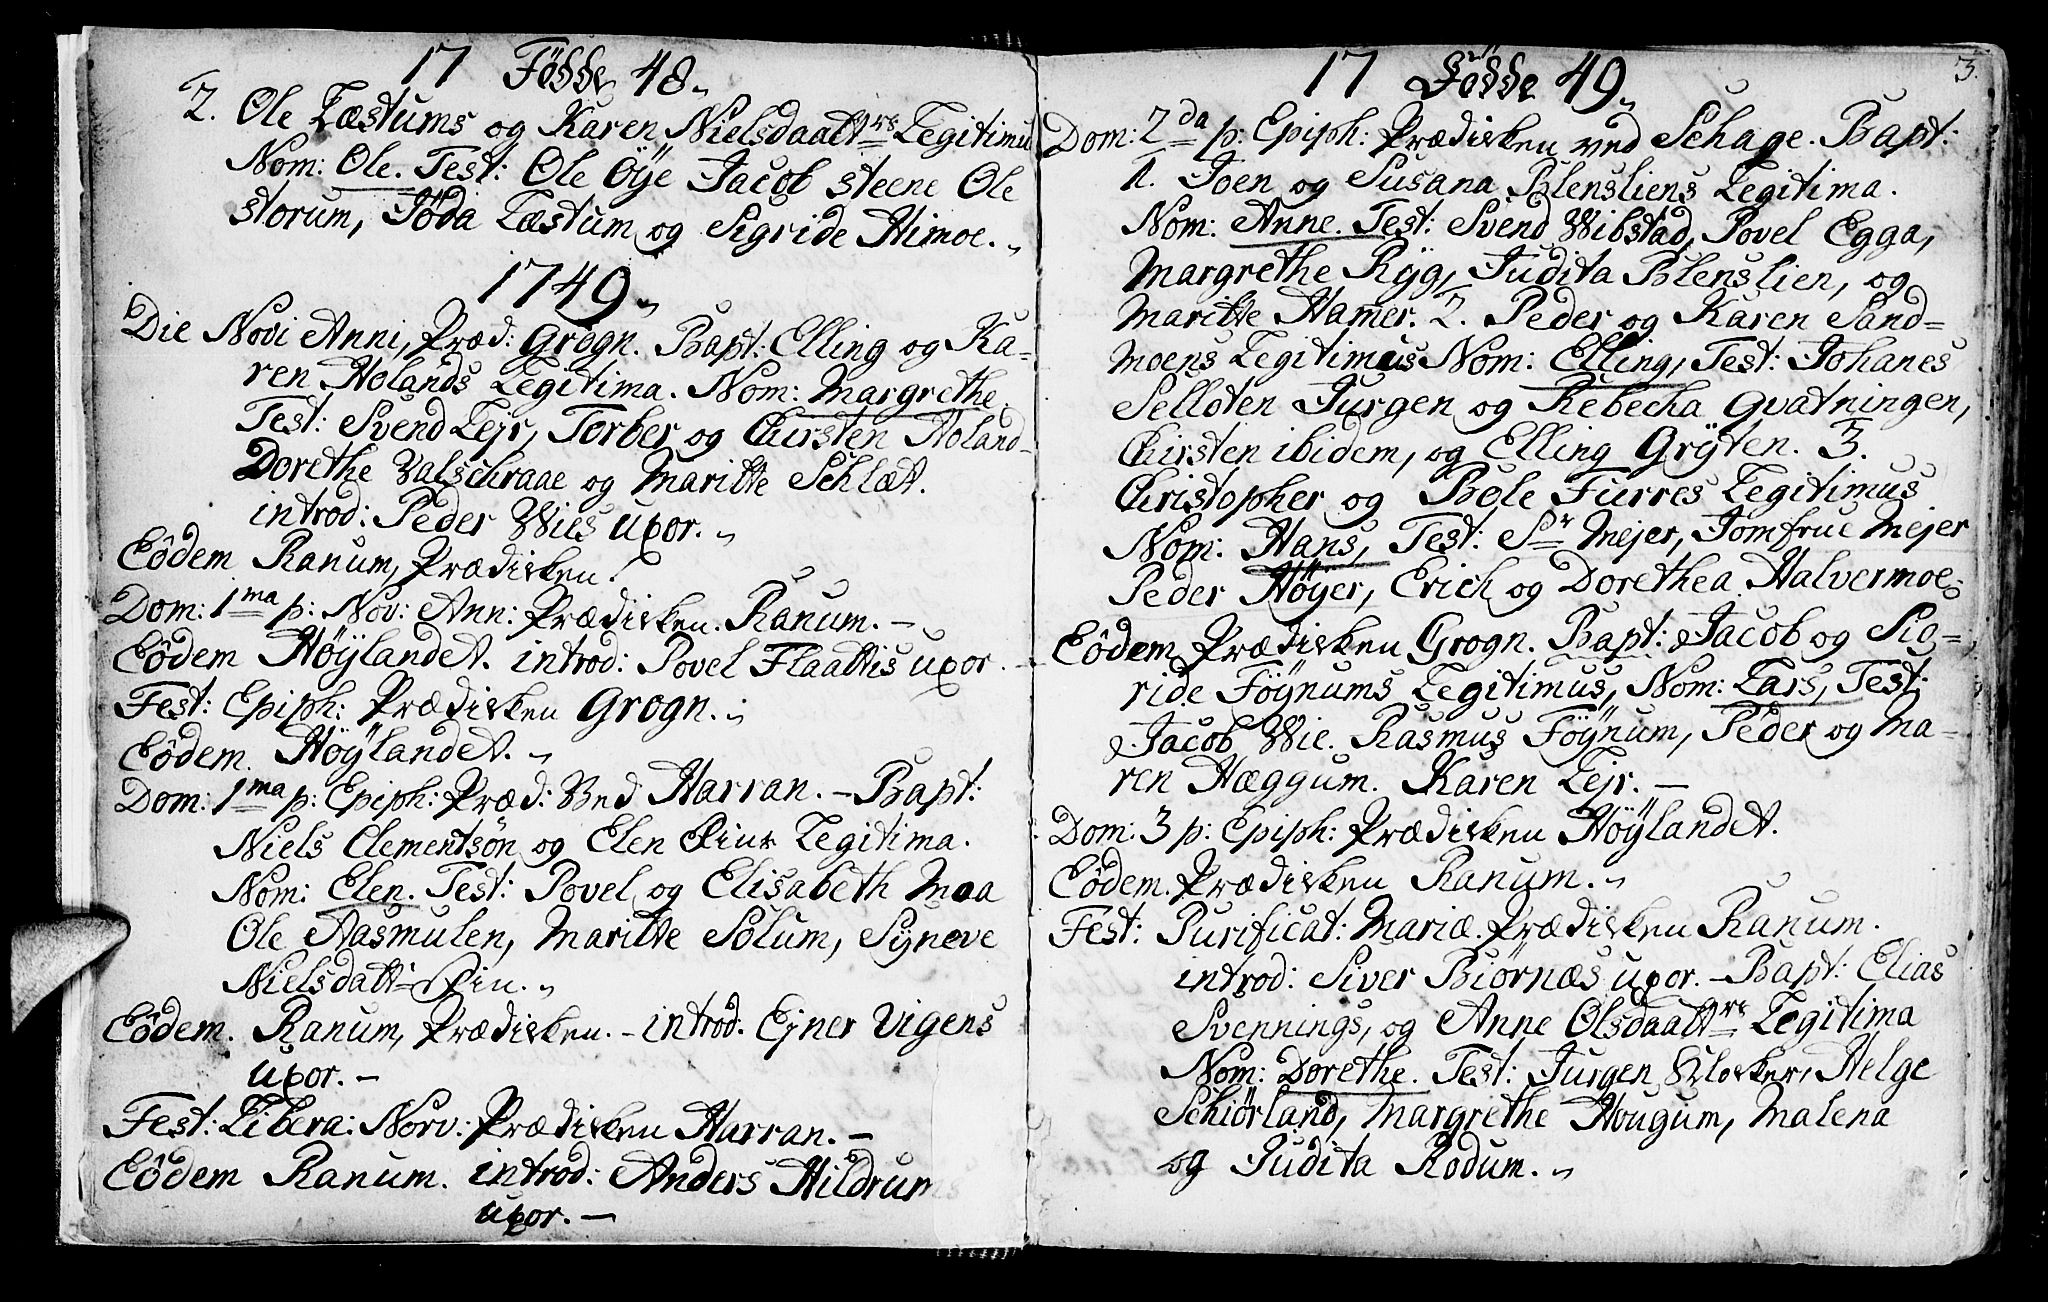 17 Födde 48.
2. Ole Læstums og Karen Nielsdaattrs Legitimus
Nom: Ole. Test: Ole Öÿe Jacob steene Ole
storum, Joda Læstum og Sigride Himoe.
1749.
Die Novi Anni, Præd: Grogn. Bapt: Elling og Ka=
ren Holands Legitima. Nom: Margrethe.
Test: Svend Lejr, Torber og Chirsten Holand
Dorethe Valschraae og Maritte Schlæt.
introd: Peder Wies uxor.
Eôdem Ranum, Prædiken.
Dom: 1ma p: Nov: Ann: Prædiken. Ranum. —
Eôdem Höÿlandet. introd: Povel Flaattis uxor. —
Fest: Epiph: Prædiken Grogn.
Eôdem. Höÿlandet.
Dom: 1ma p: Epiph: Præd: Ved Harran. — Bapt:
Niels Clementsön og Elen Legitima.
Nom: Elen. Test: Povel og Elisabeth Moa
Ole Aasmulen, Maritte Solum, Sÿneve
Nielsdatt:
Eôdem. Ranum, Prædiken. — introd. Ejner Vigens
uxor. —
Fest: Libera: Norv: Prædiken Harran. —
Eôdem Ranum. introd: Anders Hildrums
uxor. —
3.
17 Födde 49.
Dom: 2da p: Epiph: Prædiken ved Schage. Bapt:
1. Joen og Susana Blensliens Legitima.
Nom: Anne. Test: Svend Wibstad, Povel Egga,
Margrethe Rÿg, Judita Blenslien, og
Maritte Hamer. 2. Peder og Karen Sand=
moens Legitimus Nom: Elling, Test: Johanes
Selloten Jurgen og Rebecka Gvatningen,
Chirsten ibidem, og Elling Grÿten. 3.
Christopher og Bole Furres Legitimus
Nom: Hans, Test: Sr Mejer, Jomfrue Mejer
Peder Höÿer, Erich og Dorethea Halvermoe.
Eôdem Prædiken Grogn. Bapt: Jacob og Sig=
ride Föÿnums Legitimus, Nom: Lars, Test:
Jacob Wie. Rasmus Föÿnum, Peder og Ma=
ren Hæggum. Karen Lejr. —
Dom: 3 p: Epiph: Prædiken Höÿlandet.
Eôdem. Prædiken Ranum.
Fest: Purificat: Mariæ. Prædiken Ranum.
introd: Siver Biörnæs uxor. — Bapt: Elias
Svennings, og Anne Olsdaattrs Legitima
Nom: Dorethe. Test: Jurgen Klocker, Helge
Schiörland, Margrethe Hougum, Malena
og Judita Rodum.